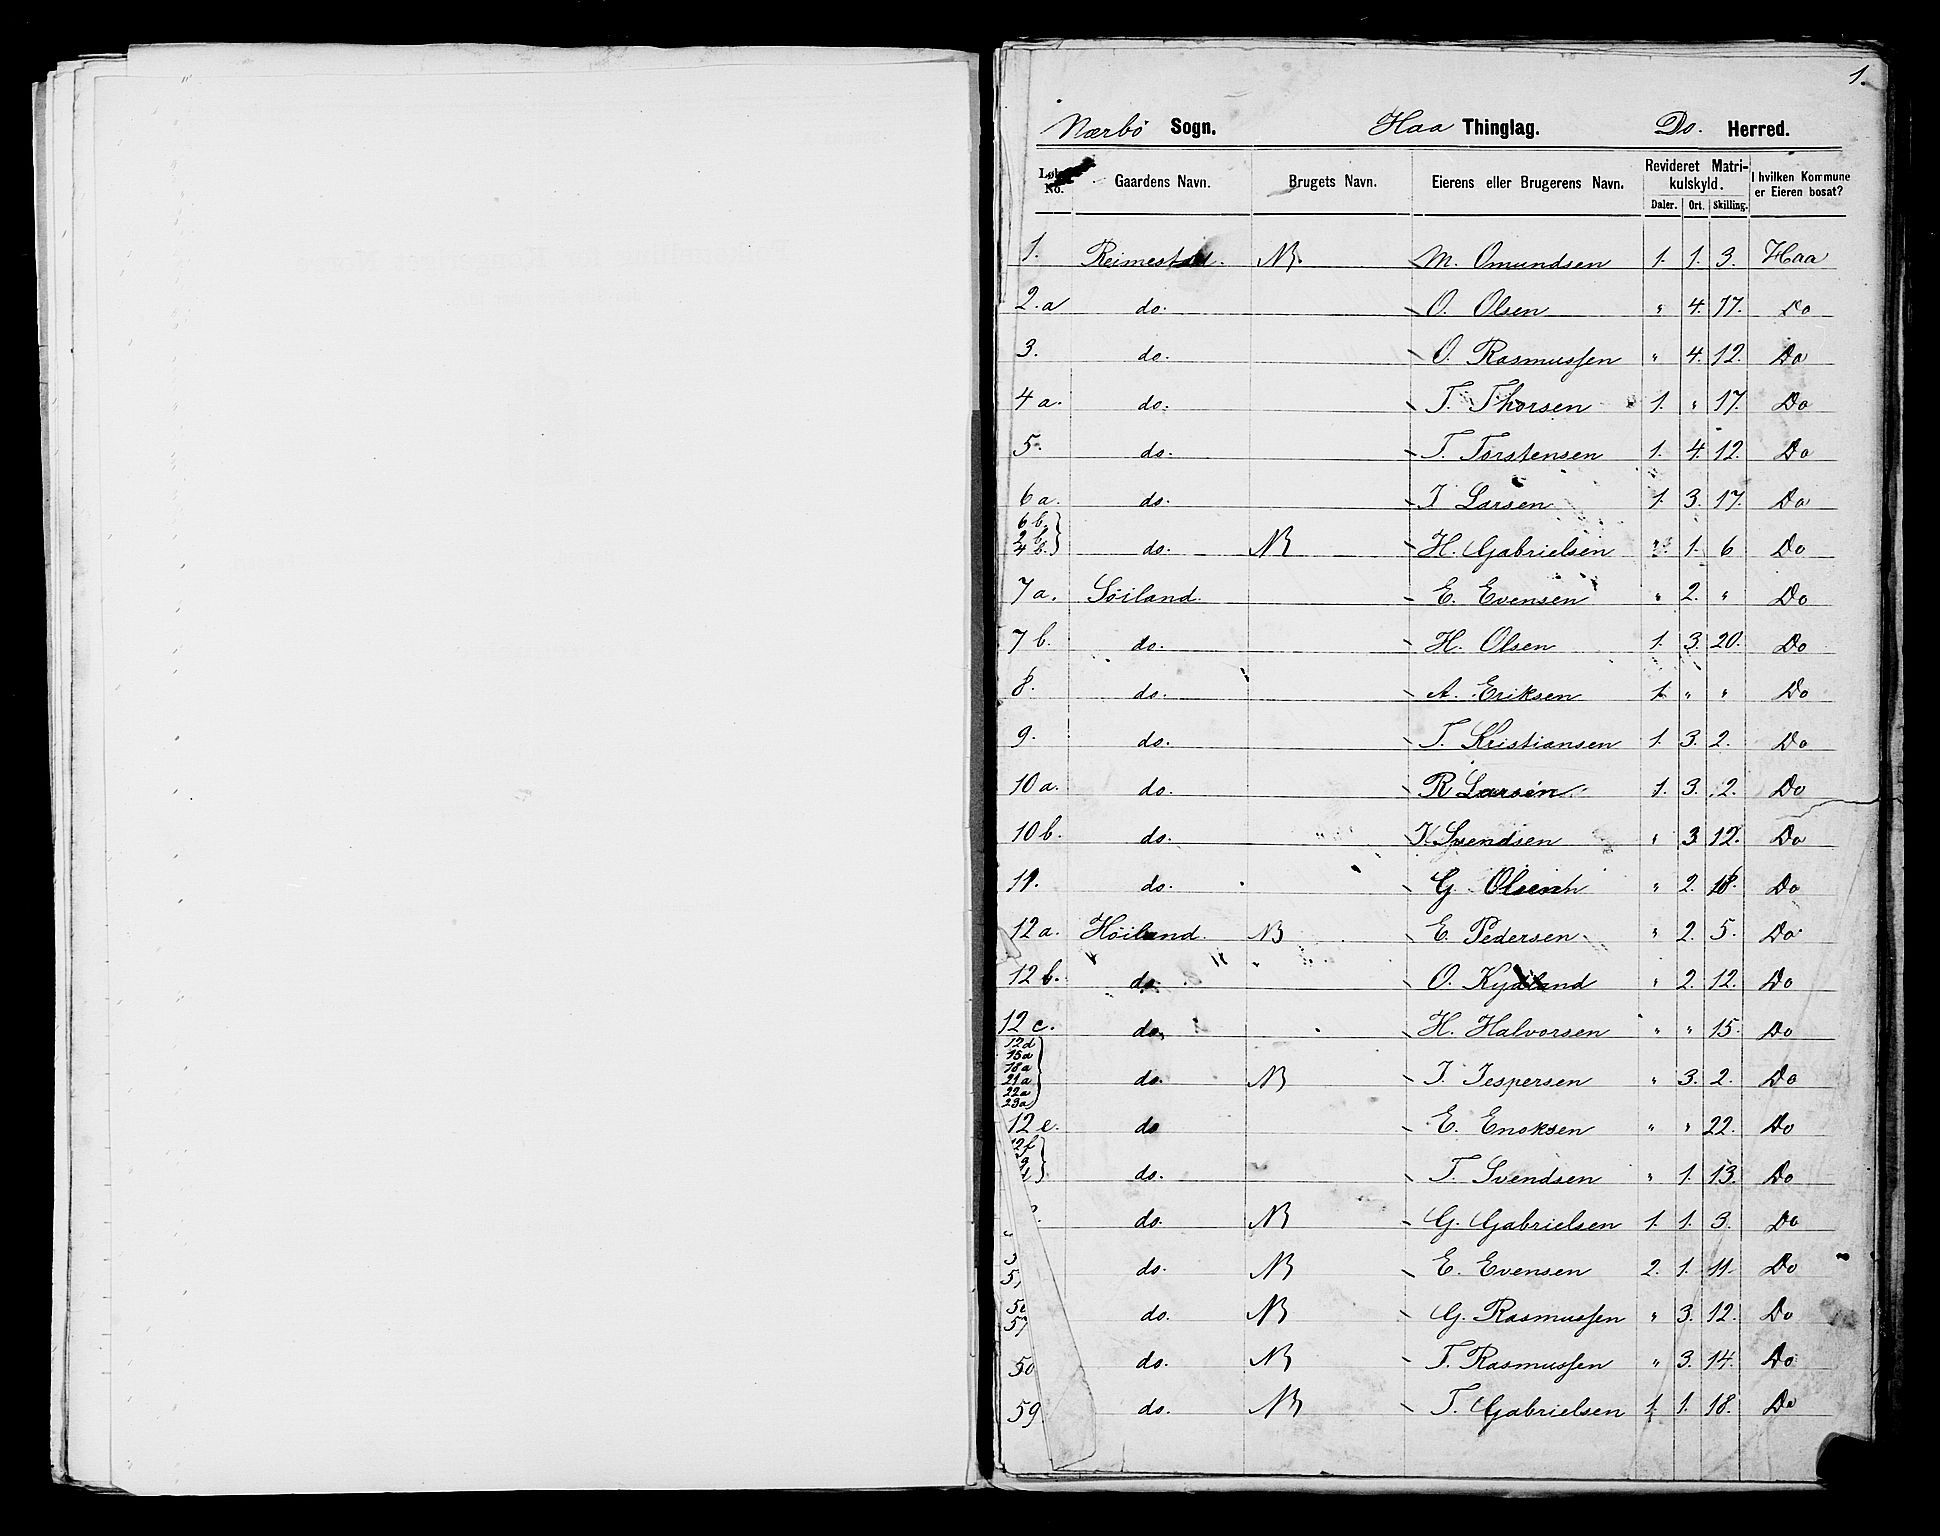 1.
Nærbö Sogn. Haa Thinglag. Do. Herred.
No. Gaardens Navn. Brugets Navn. Eierens eller Brugerens Navn. Revideret Matrikulskyld. Daler. Ort. Skilling. I hvilken Kommune er Eieren bosat?
1. Reimestad. NB. M. Omundsen 1. 1. 3. Haa
2.a do. O. Olsen " 4. 17. Do
3. do. O. Rasmussen " 4. 12. Do
4 a. do. T. Thorsen 1. " 17. Do
5. do. T. Torstensen 1. 4. 12. Do
6 a. do. T Larsen 1. 3. 17. Do
6 b. 2 b. 4 b. } do. NB H. Gabrielsen " 1. 6 Do
7 a. Söiland. E. Evensen " 2. " Do
7 b. do. H. Olsen 1. 3. 20. Do
8. do. A. Eriksen 1. " " Do
9. do. T. Kristiansen 1. 3. 2. Do
10 a. do. R Larsen 1. 3. 2. Do
10 b. do. K Svendsen " 3 12. Do
11. do. G. Olsen " 2. 18. Do
12 a. Höiland. NB E. Pedersen " 2. 5. Do
12 b. do. O. Kydland " 2. 12. Do
12 c. do. H. Halvorsen " " 15. Do
12d 15a 18a 21a 22a 23a } do. NB J. Jespersen " 3. 2. Do
12 e. do E. Enoksen " " 22. Do
12f } do. T. Svendsen " 1. 13. Do
do. NB G. Gabrielsen 1. 1. 3. Do
do. NB E. Evensen 2. 1. 11. Do
do. NB G. Rasmussen " 3. 12. Do
50 do. NB T. Rasmussen " 3. 14. Do
59 do. NB T. Gabrielsen 1. 1. 18. Do